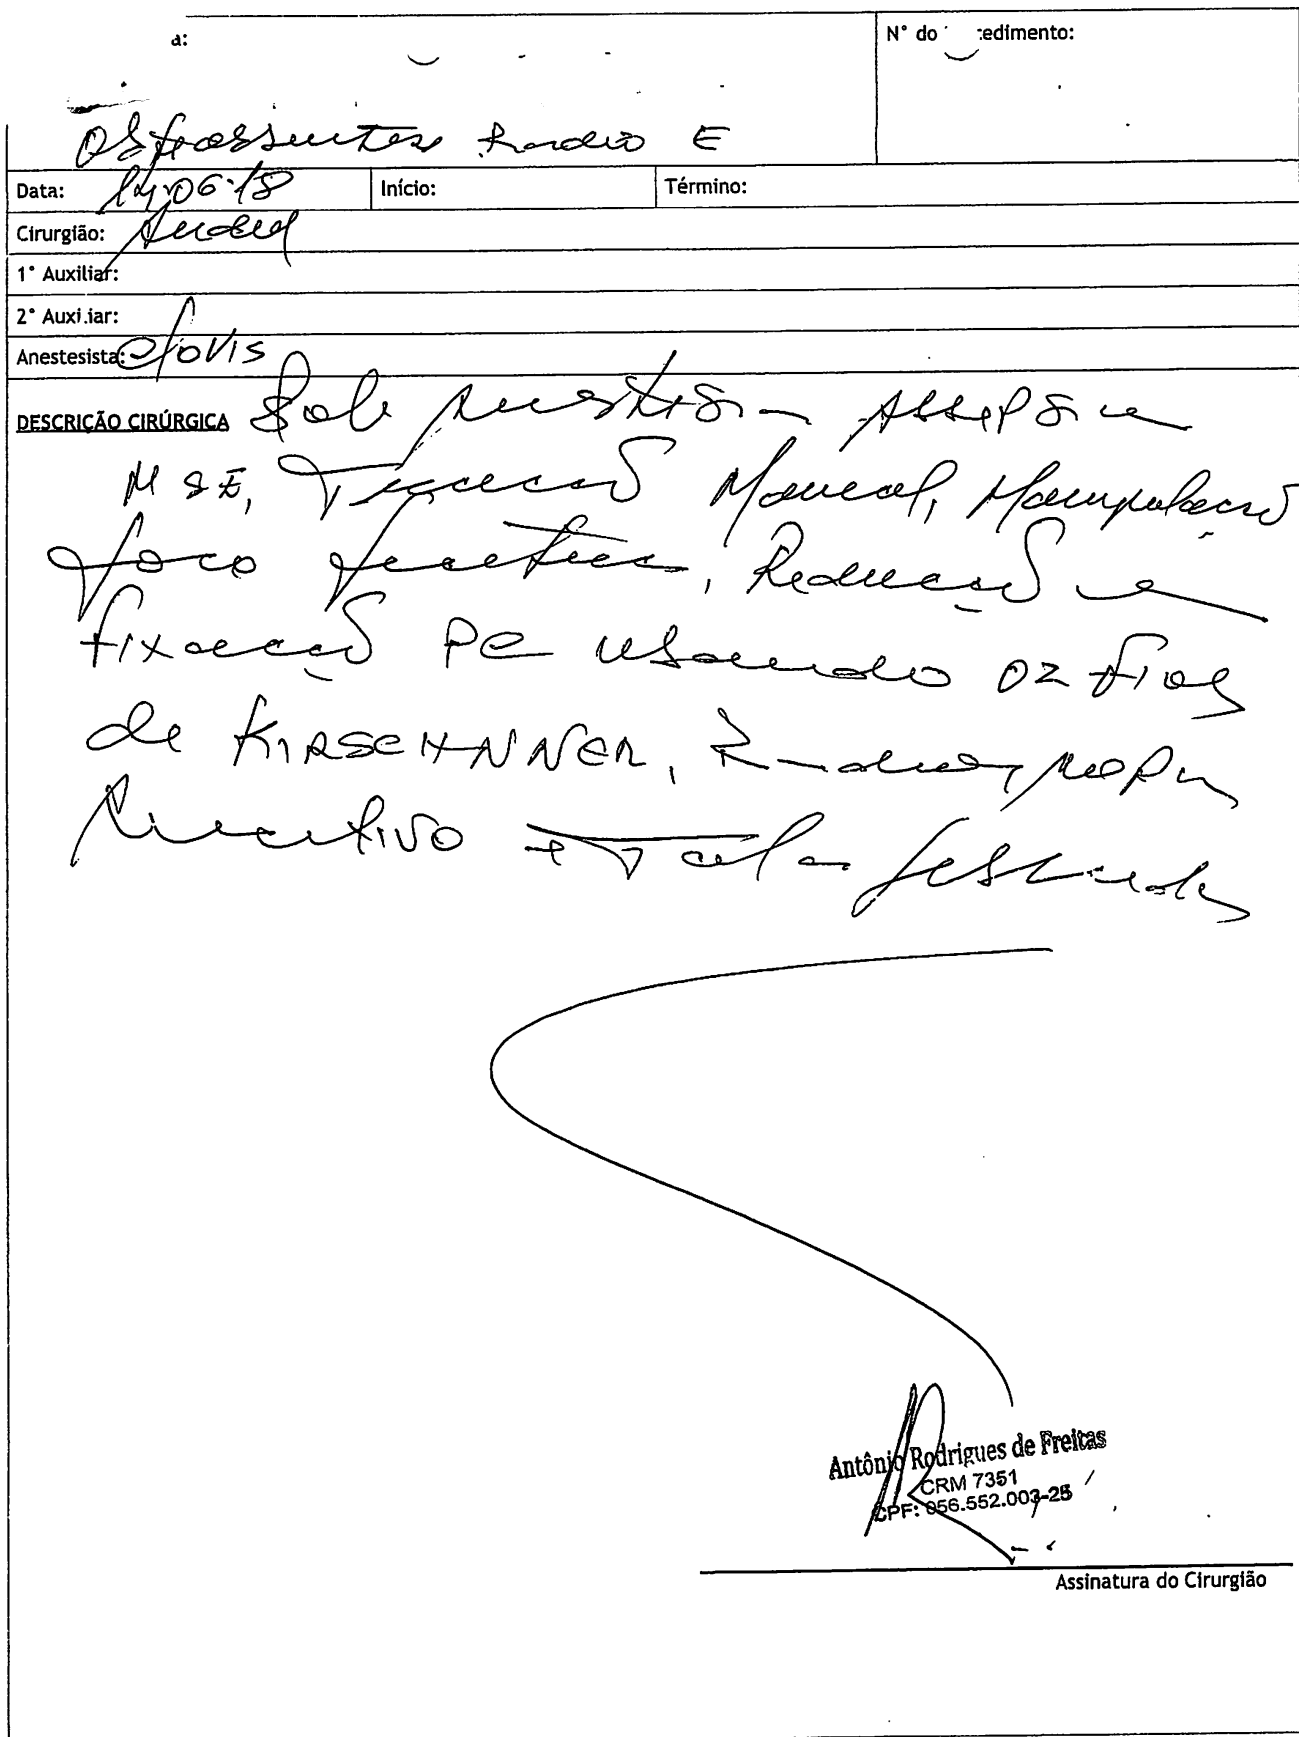 a:
N° do cedimento:
Osteossíntese Radio E
Data: 14.06.18 Início: Término:
Cirurgião:
1° Auxiliar:
2° Auxiliar:
Anestesista: Clovis
DESCRIÇÃO CIRÚRGICA Sob Anestesia Assepsia
MSE, Tração Manual, Manipulação
foco fratura, Redução e
fixação PC usando 02 fios
de KIRSCHNNER,
Curativo + Tala gessada
Antônio Rodrigues de Freitas
CRM 7351
CPF: 056.552.003-25
Assinatura do Cirurgião